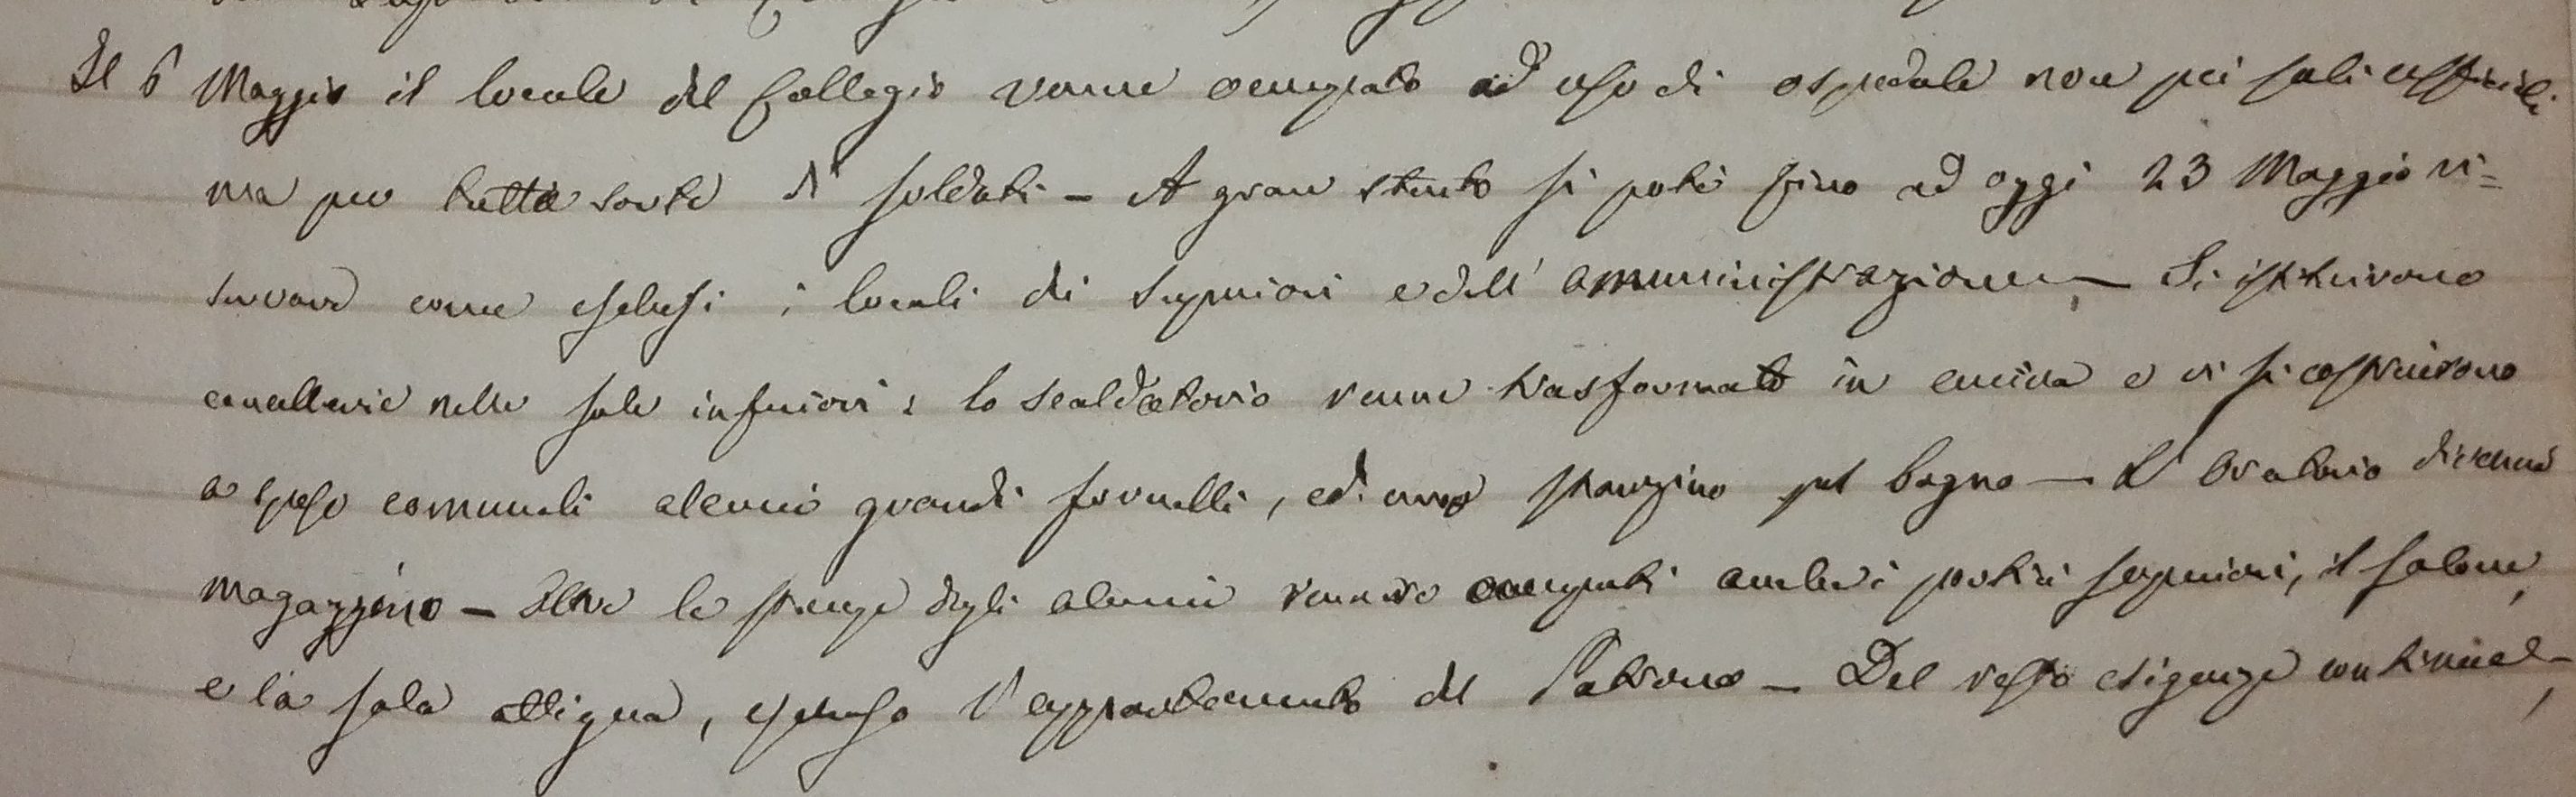 Il 6 Maggio il locale del Collegio venne occupato ad uso di ospedale non pei soli ufficiali
ma per tutta sorte di soldati – A gran stento si poté fino ad oggi 23 Maggio ri=
servare come esclusi i locali di Superiori e dell' amministrazione – Si istruirono
cancellerie nelle sale inferiori: lo scaldatorio venne trasformato in cucina e vi si costruirono
a spese comunali alcuni grandi fornelli, ed uno stanzino pel bagno – L' Oratorio divenne
magazzino – Oltre le stanze degli alunni vennero occupati anche i portici superiori, il salone,
e la sala attigua, escluso l'appartamento del Patrono – Del resto esigenze continue,